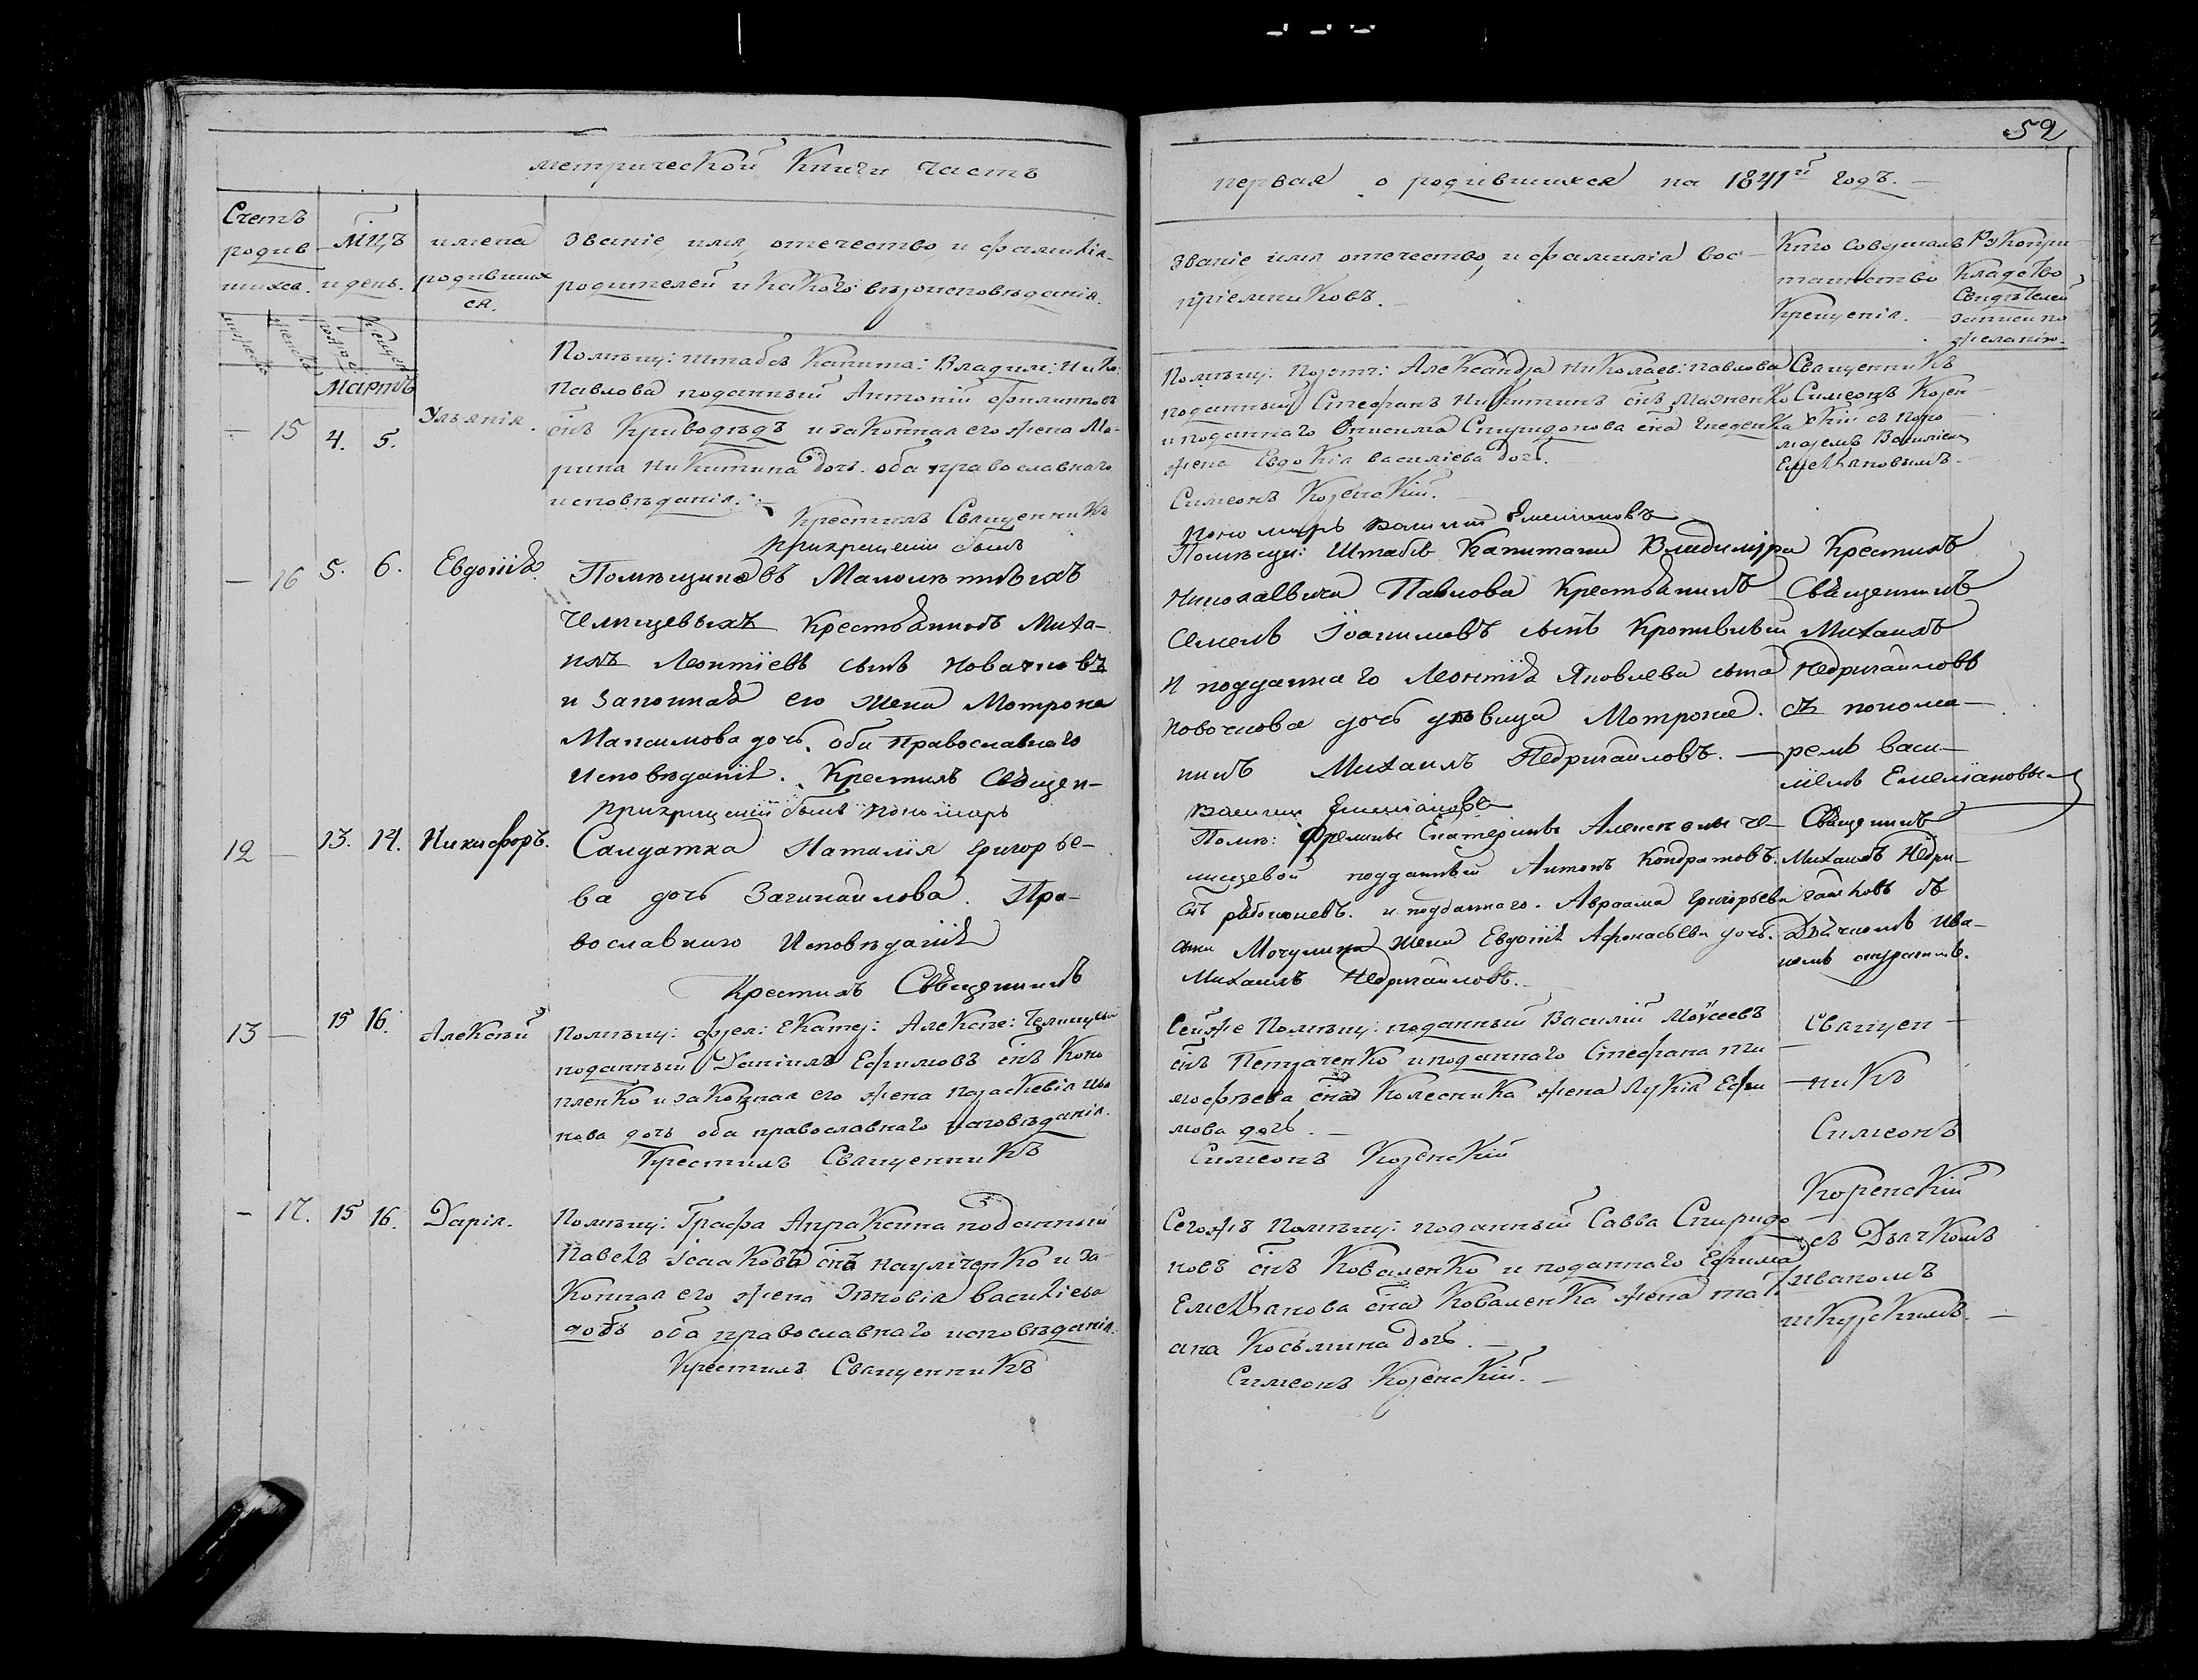 52
метрической Книги часть
первая о родившихся на 1841й годъ.
Счетъ родив шихся.
мцъ и день.
имена родивших ся.
Званіе, имя, отечество, и фамилія родителей и какого вѣроисповѣданія.
Званіе имя отечество, и фамилія вос
пріемниковъ.
Кто совершалъ
таинство
Крещенія.
Рукопри
кладство
Свидѣтелей
записи по
желанію.
Мартъ
— 15
4. 5.
Ульянія.
Помѣщ: штабсъ Капита: Владим: Нико:
Павлова поданный Антоній Филиповъ
снъ Криводѣдъ и законная его жена Ма-
рина Никитина дочь. оба православнаго
исповѣданія.
Крестилъ Священникъ
прикрещеніи былъ
Помѣщ: Порет: Александра Николаев: Павлова
поданный Стефанъ Никитинъ снъ Мазненко
и поданнаго Онисима Спиридонова сна Гнеденка
жена Евдокія Василіева дочь.
Симеонъ Коренскій.
Пономарь Василій Емелиановъ
Священникъ
Симеонъ Корен-
скій съ поно
маремъ Василіем
Емельяновымъ
— 16
5. 6.
Евдокія.
Помѣщиковъ Малолѣтныхъ
Челищевыхъ Крестьянинъ Миха-
илъ Леонтіевъ сынъ Новачковъ
и Законная его жена Мотрона
Максимова дочь. оба Православнаго
Исповѣданія. Крестилъ Священ-
Прикрещеніи былъ Пономарь
Помѣщи: Штабсъ Капитана Владиміра
Николаевича Павлова Крестьянинъ
Семенъ Іоакимовъ сынъ Кропивный
и подданнаго Леонтія Яковлева сына
Новочкова дочь дѣвица Мотрона.
никъ Михаилъ Недригайловъ. —
Василий Емелиановъ
Крестилъ
Священникъ
Михаилъ
Недригайловъ
съ понома-
ремъ Васи-
лiемъ Емелiановы-
12 —
13. 14.
Никифоръ.
Салдатка Наталія Григорье-
ва дочь Загинайлова. Пра-
вославнаго Исповѣданія
Крестилъ Священникъ
Помѣ: Фрелины Екатерины Алексѣевны Че-
лищевой подданный Антонъ Кондратовъ.
снъ и подданнаго. Авраама Григорьева
сына жена Евдокія Афонасьева дочь.
Михаилъ Недригайловъ.
Священникъ
Михаилъ Недри-
гайловъ съ
Дьячкомъ Ива-
номъ
13 —
15 16.
Алексѣй
Помѣщ: фрел: Екатер: Алексѣе: Челищевы
поданный Даніилъ Ефимовъ снъ Коно
пленко и законная его жена Параскевія Ива
нова дочь оба православнаго исповѣданія.
Крестилъ Священникъ
Сейже Помѣщ: поданный Василій Моѵсеевъ
снъ Петраченко и поданнаго Стефана Ти
мофѣева сна Колесника жена Лукія Ефи
мова дочь.
Симеонъ Коренскій
Священ-
никъ
Симеонъ
Коренскій
съ Дьячкомъ
Иваномъ
Шкурскимъ.
— 17.
15 16.
Дарія.
Помѣщ: Графа Апраксина поданный
Павелъ Ісааковъ снъ Науличенко и за
конная его жена Зѣновія Василіева
дочь оба православнаго исповѣданія.
Крестилъ Священникъ
Сегожъ Помѣщ: поданный Савва Спиридо
новъ снъ Коваленко и поданнаго Ефима
Емельянова сна Коваленка жена Тать
ана Косьмина дочь.
Симеонъ Коренскій.